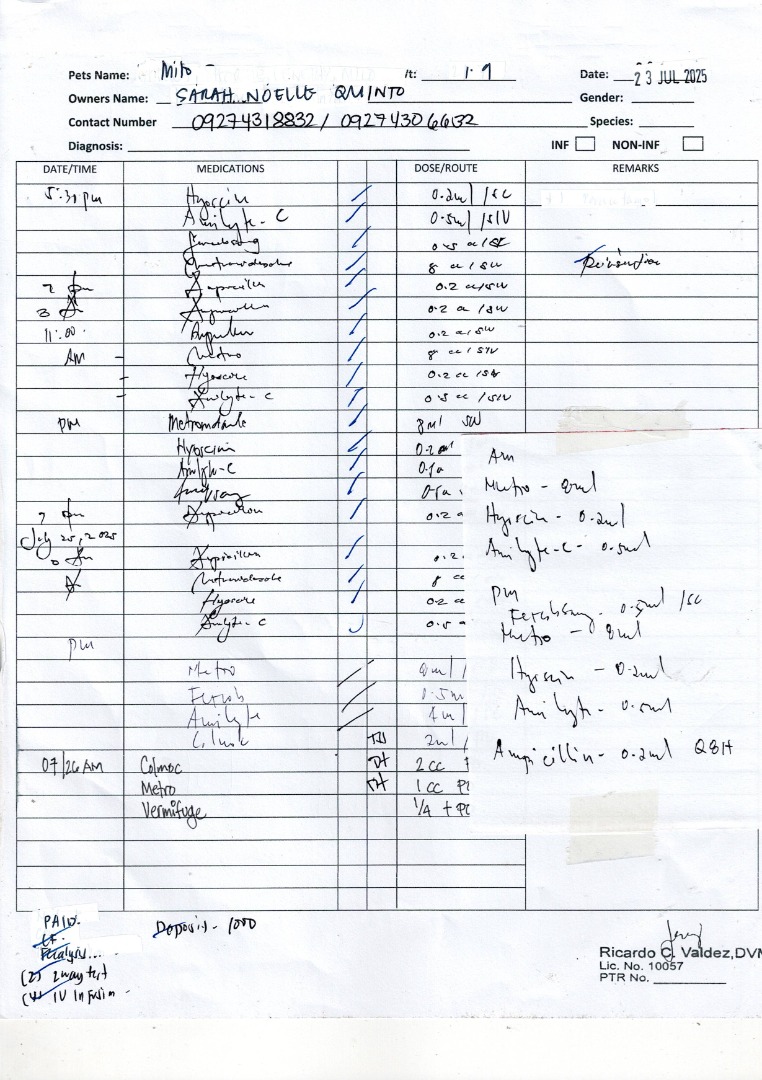 Pets Name: Mito - /t: 1.9 Date: 23 JUL 2025
Owners Name: SARAH NOELLE QUINTO Gender:
Contact Number 09274318832 / 09274306632 Species:
Diagnosis: INF NON-INF
DATE/TIME MEDICATIONS DOSE/ROUTE REMARKS
5:30 pm Hyoscin 0.2ml /SC
Amilyte-C 0.5ml /SIV
0.5 cc/SC
8 cc /SIV
7 pm 0.2 cc/SIV
3 0.2 cc /SIV
11:00 0.2 cc /SIV
AM - Metro 8 cc /SIV
- Hyoscine 0.2 cc /SIV
- Amilyte-C 0.5 cc /SIV
pm 8ml SIV
Hyoscin 0.2ml
Amilyte-C 0.5
0.5
7 pm 0.2
July 25, 2025
0.2
8 cc
Hyoscine 0.2 cc
Amilyte-C 0.5
pm
Metro 8ml /
Ferob 0.5m
Amilyte 1m/
2ml /
07/26 AM Colmoc 2 cc
Metro 1 cc P
Vermifuge 1/4 + PO
Am
Metro - 8ml
Hyoscin - 0.2ml
Amilyte-C - 0.5ml
pm
Ferobsong - 0.5ml /SC
Metro - 8ml
Hyoscin - 0.2ml
Amilyte - 0.5ml
Ampicillin - 0.2ml Q8H
PAID. Deposit - 1000
CF.
Fecalysis...
(2) 2way test
(4) IV Infusion -
Ricardo C. Valdez, DVM
Lic. No. 10057
PTR No.